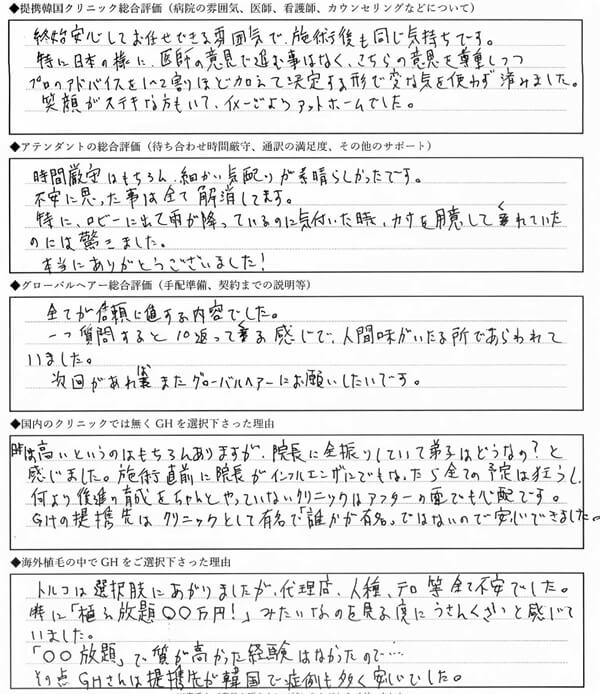 ◆提携韓国クリニック総合評価（病院の雰囲気、医師、看護師、カウンセリングなどについて）
終始安心してお任せできる雰囲気で、施術後も同じ気持ちです。
特に日本の様に、医師の意見で進む事はなく、こちらの意見を尊重しつつ
プロのアドバイスを1〜2割ほど加えて決定する形で変な気を使わず済みました。
笑顔がステキな方もいて、イメージよりアットホームでした。
◆アテンダントの総合評価（待ち合わせ時間厳守、通訳の満足度、その他のサポート）
時間厳守はもちろん、細かい気配りが素晴らしかったです。
不安に思った事は全て解消してます。
特に、ロビーに出て雨が降っているのに気付いた時、カサを用意してくれていた
のには驚きました。
本当にありがとうございました！
◆グローバルヘアー総合評価（手配準備、契約までの説明等）
全てが信頼に値する内容でした。
一つ質問すると10返ってくる感じで、人間味がいたる所であらわれて
いました。
次回があればまたグローバルヘアーにお願いしたいです。
◆国内のクリニックでは無くGHを選択下さった理由
は高いというのはもちろんありますが、院長に全振りしていて弟子はどうなの？と
感じました。施術直前に院長がインフルエンザにでもなったら全ての予定は狂うし、
何より後進の育成をちゃんとやっていないクリニックはアフターの面でも心配です。
GHの提携先はクリニックとして有名で「誰かが有名」ではないので安心できました。
◆海外植毛の中でGHをご選択下さった理由
トルコは選択肢にあがりましたが、代理店、人種、テロ等全て不安でした。
特に「植え放題〇〇万円！」みたいなのを見る度にうさんくさいと感じて
いました。
「〇〇放題」で質が高かった経験はなかったので…
その点GHさんは提携先が韓国で症例も多く安心でした。